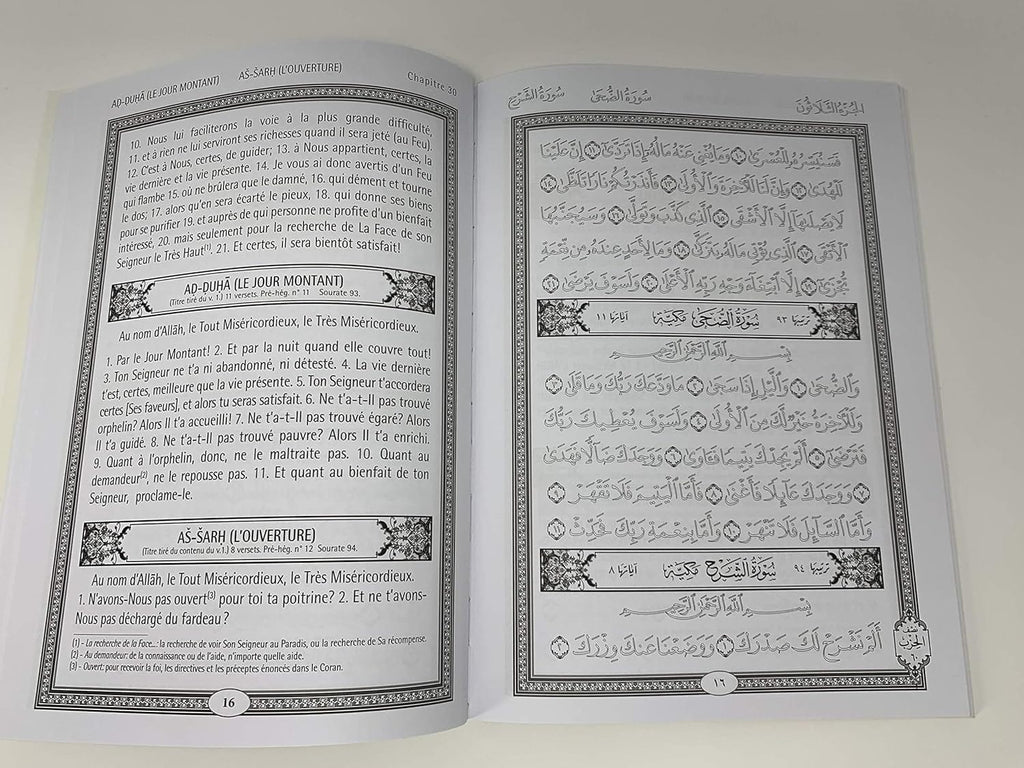 AḌ-ḌUḤĀ (LE JOUR MONTANT) AŠ-ŠARḤ (L'OUVERTURE) Chapitre 30
10. Nous lui faciliterons la voie à la plus grande difficulté,
11. et à rien ne lui serviront ses richesses quand il sera jeté (au Feu).
12. C'est à Nous, certes, de guider; 13. à Nous appartient, certes, la
vie dernière et la vie présente. 14. Je vous ai donc avertis d'un Feu
qui flambe 15. où ne brûlera que le damné, 16. qui dément et tourne
le dos; 17. alors qu'en sera écarté le pieux, 18. qui donne ses biens
pour se purifier 19. et auprès de qui personne ne profite d'un bienfait
intéressé, 20. mais seulement pour la recherche de La Face de son
Seigneur le Très Haut(1). 21. Et certes, il sera bientôt satisfait!
AḌ-ḌUḤĀ (LE JOUR MONTANT)
(Titre tiré du v. 1.) 11 versets. Pré-hég. n° 11 Sourate 93.
Au nom d'Allāh, le Tout Miséricordieux, le Très Miséricordieux.
1. Par le Jour Montant! 2. Et par la nuit quand elle couvre tout!
3. Ton Seigneur ne t'a ni abandonné, ni détesté. 4. La vie dernière
t'est, certes, meilleure que la vie présente. 5. Ton Seigneur t'accordera
certes [Ses faveurs], et alors tu seras satisfait. 6. Ne t'a-t-Il pas trouvé
orphelin? Alors Il t'a accueilli! 7. Ne t'a-t-Il pas trouvé égaré? Alors
Il t'a guidé. 8. Ne t'a-t-Il pas trouvé pauvre? Alors Il t'a enrichi.
9. Quant à l'orphelin, donc, ne le maltraite pas. 10. Quant au
demandeur(2), ne le repousse pas. 11. Et quant au bienfait de ton
Seigneur, proclame-le.
AŠ-ŠARḤ (L'OUVERTURE)
(Titre tiré du contenu du v.1.) 8 versets. Pré-hég. n° 12 Sourate 94.
Au nom d'Allāh, le Tout Miséricordieux, le Très Miséricordieux.
1. N'avons-Nous pas ouvert(3) pour toi ta poitrine? 2. Et ne t'avons-
Nous pas déchargé du fardeau ?
(1) - La recherche de la Face...: la recherche de voir Son Seigneur au Paradis, ou la recherche de Sa récompense.
(2) - Au demandeur: de la connaissance ou de l'aide, n'importe quelle aide.
(3) - Ouvert: pour recevoir la foi, les directives et les préceptes énoncés dans le Coran.
16
الجُزْءُ الثَّلَاثُونَ سُورَةُ الضُّحَىٰ سُورَةُ الشَّرْحِ
فَسَنُيَسِّرُهُۥ لِلْعُسْرَىٰ ١٠ وَمَا يُغْنِى عَنْهُ مَالُهُۥٓ إِذَا تَرَدَّىٰٓ ١١ إِنَّ عَلَيْنَا
لَلْهُدَىٰ ١٢ وَإِنَّ لَنَا لَلْءَاخِرَةَ وَٱلْأُولَىٰ ١٣ فَأَنذَرْتُكُمْ نَارًا تَلَظَّىٰ ١٤
لَا يَصْلَىٰهَآ إِلَّا ٱلْأَشْقَى ١٥ ٱلَّذِى كَذَّبَ وَتَوَلَّىٰ ١٦ وَسَيُجَنَّبُهَا
ٱلْأَتْقَى ١٧ ٱلَّذِى يُؤْتِى مَالَهُۥ يَتَزَكَّىٰ ١٨ وَمَا لِأَحَدٍ عِندَهُۥ مِن نِّعْمَةٍ
تُجْزَىٰٓ ١٩ إِلَّا ٱبْتِغَآءَ وَجْهِ رَبِّهِ ٱلْأَعْلَىٰ ٢٠ وَلَسَوْفَ يَرْضَىٰ ٢١
ترتيبها ٩٣ سُورَةُ الضُّحَىٰ مَكِّيَّة آياتها ١١
بِسْمِ ٱللَّهِ ٱلرَّحْمَٰنِ ٱلرَّحِيمِ
وَٱلضُّحَىٰ ١ وَٱلَّيْلِ إِذَا سَجَىٰ ٢ مَا وَدَّعَكَ رَبُّكَ وَمَا قَلَىٰ ٣
وَلَلْءَاخِرَةُ خَيْرٌ لَّكَ مِنَ ٱلْأُولَىٰ ٤ وَلَسَوْفَ يُعْطِيكَ رَبُّكَ
فَتَرْضَىٰٓ ٥ أَلَمْ يَجِدْكَ يَتِيمًا فَـَٔاوَىٰ ٦ وَوَجَدَكَ ضَآلًّا فَهَدَىٰ
٧ وَوَجَدَكَ عَآئِلًا فَأَغْنَىٰ ٨ فَأَمَّا ٱلْيَتِيمَ فَلَا تَقْهَرْ ٩
وَأَمَّا ٱلسَّآئِلَ فَلَا تَنْهَرْ ١٠ وَأَمَّا بِنِعْمَةِ رَبِّكَ فَحَدِّثْ ١١
ترتيبها ٩٤ سُورَةُ الشَّرْحِ مَكِّيَّة آياتها ٨
بِسْمِ ٱللَّهِ ٱلرَّحْمَٰنِ ٱلرَّحِيمِ
أَلَمْ نَشْرَحْ لَكَ صَدْرَكَ ١ وَوَضَعْنَا عَنكَ وِزْرَكَ ٢
نصف
الحزب
٦٠
١٦